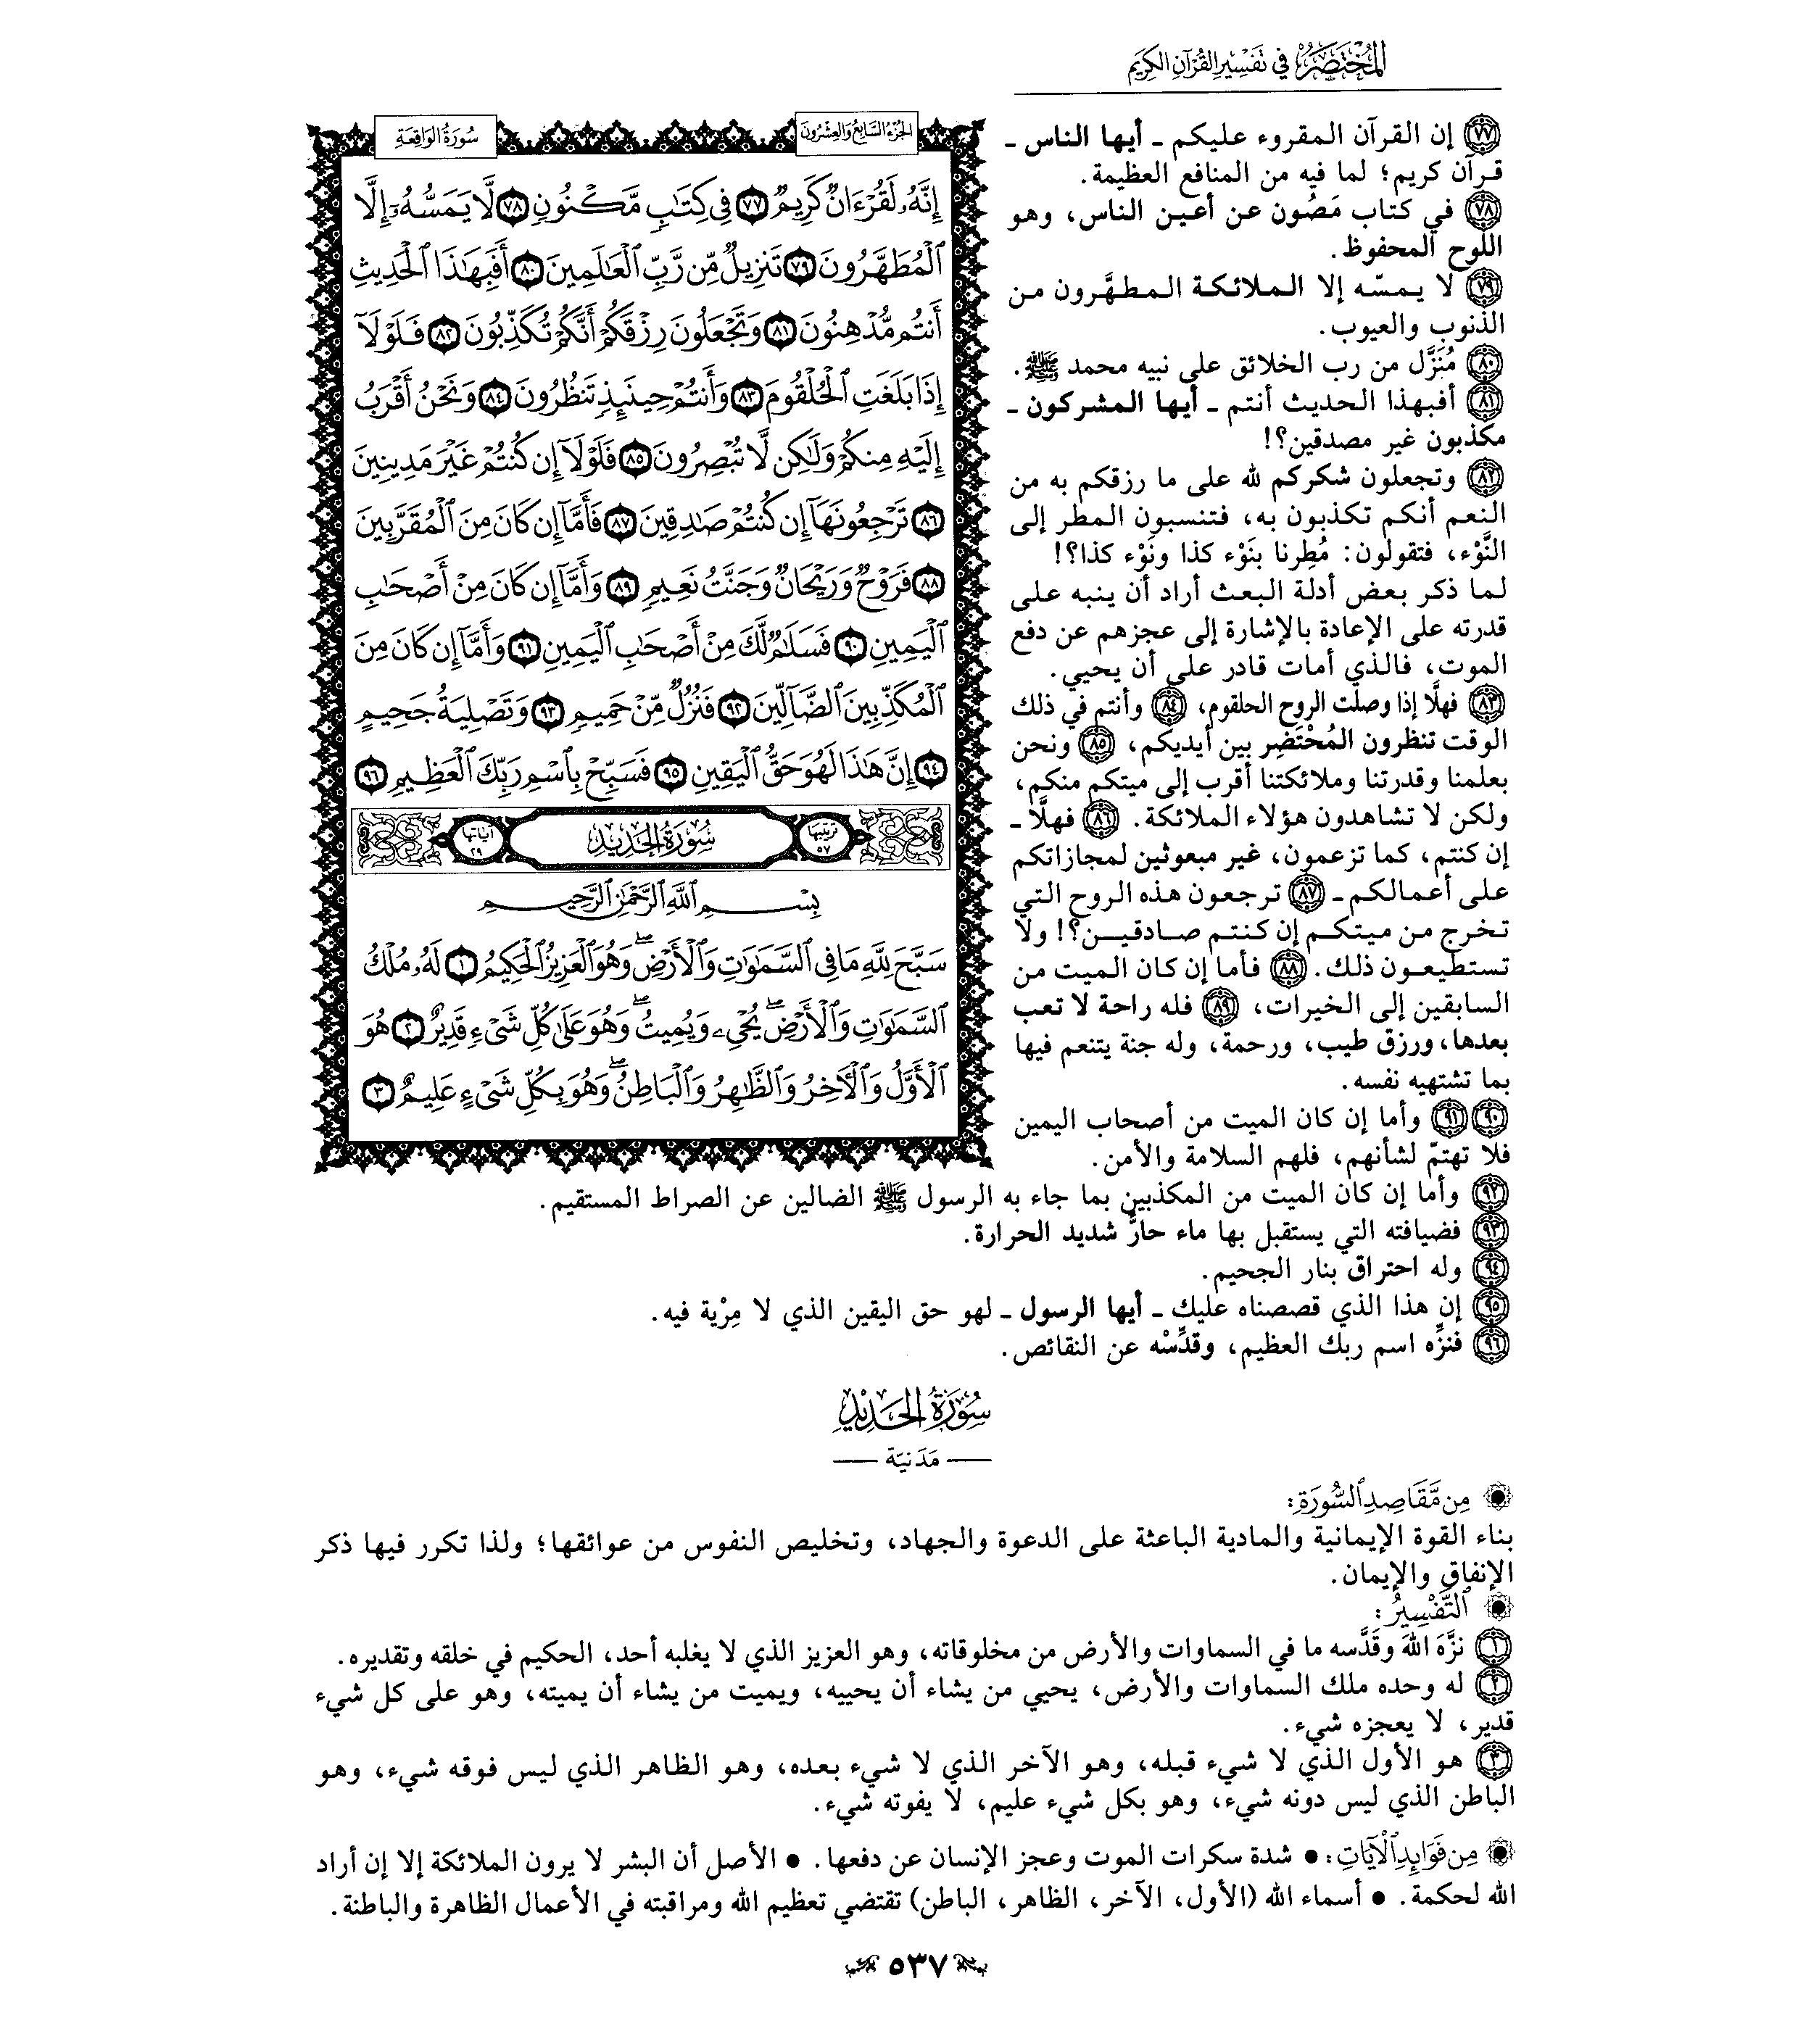 المُخْتَصَرُ فِي تَفْسِيرِ القُرْآنِ الكَرِيمِ
سُورَةُ الوَاقِعَةِ
الجُزْءُ السَّابِعُ وَالعِشْرُونَ
إِنَّهُۥ لَقُرْءَانٌ كَرِيمٌ ٧٧ فِي كِتَٰبٍ مَّكْنُونٍ ٧٨ لَّا يَمَسُّهُۥٓ إِلَّا
ٱلْمُطَهَّرُونَ ٧٩ تَنزِيلٌ مِّن رَّبِّ ٱلْعَٰلَمِينَ ٨٠ أَفَبِهَٰذَا ٱلْحَدِيثِ
أَنتُم مُّدْهِنُونَ ٨١ وَتَجْعَلُونَ رِزْقَكُمْ أَنَّكُمْ تُكَذِّبُونَ ٨٢ فَلَوْلَآ
إِذَا بَلَغَتِ ٱلْحُلْقُومَ ٨٣ وَأَنتُمْ حِينَئِذٍ تَنظُرُونَ ٨٤ وَنَحْنُ أَقْرَبُ
إِلَيْهِ مِنكُمْ وَلَٰكِن لَّا تُبْصِرُونَ ٨٥ فَلَوْلَآ إِن كُنتُمْ غَيْرَ مَدِينِينَ
٨٦ تَرْجِعُونَهَآ إِن كُنتُمْ صَٰدِقِينَ ٨٧ فَأَمَّآ إِن كَانَ مِنَ ٱلْمُقَرَّبِينَ
٨٨ فَرَوْحٌ وَرَيْحَانٌ وَجَنَّتُ نَعِيمٍ ٨٩ وَأَمَّآ إِن كَانَ مِنْ أَصْحَٰبِ
ٱلْيَمِينِ ٩٠ فَسَلَٰمٌ لَّكَ مِنْ أَصْحَٰبِ ٱلْيَمِينِ ٩١ وَأَمَّآ إِن كَانَ مِنَ
ٱلْمُكَذِّبِينَ ٱلضَّآلِّينَ ٩٢ فَنُزُلٌ مِّنْ حَمِيمٍ ٩٣ وَتَصْلِيَةُ جَحِيمٍ
٩٤ إِنَّ هَٰذَا لَهُوَ حَقُّ ٱلْيَقِينِ ٩٥ فَسَبِّحْ بِٱسْمِ رَبِّكَ ٱلْعَظِيمِ ٩٦
ترتيبها ٥٧ سُورَةُ الحَدِيدِ آياتها ٢٩
بِسْمِ ٱللَّهِ ٱلرَّحْمَٰنِ ٱلرَّحِيمِ
سَبَّحَ لِلَّهِ مَا فِي ٱلسَّمَٰوَٰتِ وَٱلْأَرْضِۖ وَهُوَ ٱلْعَزِيزُ ٱلْحَكِيمُ ١ لَهُۥ مُلْكُ
ٱلسَّمَٰوَٰتِ وَٱلْأَرْضِۖ يُحْيِۦ وَيُمِيتُۖ وَهُوَ عَلَىٰ كُلِّ شَيْءٍ قَدِيرٌ ٢ هُوَ
ٱلْأَوَّلُ وَٱلْءَاخِرُ وَٱلظَّٰهِرُ وَٱلْبَاطِنُۖ وَهُوَ بِكُلِّ شَيْءٍ عَلِيمٌ ٣
٧٧ إن القرآن المقروء عليكم ـ أيها الناس ـ
قرآن كريم؛ لما فيه من المنافع العظيمة.
٧٨ في كتاب مَصُون عن أعين الناس، وهو
اللوح المحفوظ.
٧٩ لا يمسّه إلا الملائكة المطهَّرون من
الذنوب والعيوب.
٨٠ مُنَزَّل من رب الخلائق على نبيه محمد ﷺ.
٨١ أفبهذا الحديث أنتم ـ أيها المشركون ـ
مكذبون غير مصدقين؟!
٨٢ وتجعلون شكركم لله على ما رزقكم به من
النعم أنكم تكذبون به، فتنسبون المطر إلى
النَّوْء، فتقولون: مُطِرنا بنَوْء كذا ونَوْء كذا؟!
لما ذكر بعض أدلة البعث أراد أن ينبه على
قدرته على الإعادة بالإشارة إلى عجزهم عن دفع
الموت، فالذي أمات قادر على أن يحيي.
٨٣ فهلَّا إذا وصلت الروح الحلقوم، ٨٤ وأنتم في ذلك
الوقت تنظرون المُحْتَضِر بين أيديكم، ٨٥ ونحن
بعلمنا وقدرتنا وملائكتنا أقرب إلى ميتكم منكم،
ولكن لا تشاهدون هؤلاء الملائكة. ٨٦ فهلَّا ـ
إن كنتم، كما تزعمون، غير مبعوثين لمجازاتكم
على أعمالكم ـ ٨٧ ترجعون هذه الروح التي
تخرج من ميتكم إن كنتم صادقين؟! ولا
تستطيعون ذلك. ٨٨ فأما إن كان الميت من
السابقين إلى الخيرات، ٨٩ فله راحة لا تعب
بعدها، ورزق طيب، ورحمة، وله جنة يتنعم فيها
بما تشتهيه نفسه.
٩٠ ٩١ وأما إن كان الميت من أصحاب اليمين
فلا تهتمّ لشأنهم، فلهم السلامة والأمن.
٩٢ وأما إن كان الميت من المكذبين بما جاء به الرسول ﷺ الضالين عن الصراط المستقيم.
٩٣ فضيافته التي يستقبل بها ماء حارٌّ شديد الحرارة.
٩٤ وله احتراق بنار الجحيم.
٩٥ إن هذا الذي قصصناه عليك ـ أيها الرسول ـ لهو حق اليقين الذي لا مِرْية فيه.
٩٦ فنزِّه اسم ربك العظيم، وقدِّسْه عن النقائص.
سُورَةُ الحَدِيدِ
— مَدَنيّة —
مِن مَّقَاصِدِ ٱلسُّورَةِ:
بناء القوة الإيمانية والمادية الباعثة على الدعوة والجهاد، وتخليص النفوس من عوائقها؛ ولذا تكرر فيها ذكر
الإنفاق والإيمان.
ٱلتَّفْسِيرُ:
١ نزَّهَ اللهَ وقَدَّسه ما في السماوات والأرض من مخلوقاته، وهو العزيز الذي لا يغلبه أحد، الحكيم في خلقه وتقديره.
٢ له وحده ملك السماوات والأرض، يحيي من يشاء أن يحييه، ويميت من يشاء أن يميته، وهو على كل شيء
قدير، لا يعجزه شيء.
٣ هو الأول الذي لا شيء قبله، وهو الآخر الذي لا شيء بعده، وهو الظاهر الذي ليس فوقه شيء، وهو
الباطن الذي ليس دونه شيء، وهو بكل شيء عليم، لا يفوته شيء.
مِن فَوَائِدِ ٱلْآيَاتِ: • شدة سكرات الموت وعجز الإنسان عن دفعها. • الأصل أن البشر لا يرون الملائكة إلا إن أراد
الله لحكمة. • أسماء الله (الأول، الآخر، الظاهر، الباطن) تقتضي تعظيم الله ومراقبته في الأعمال الظاهرة والباطنة.
٥٣٧